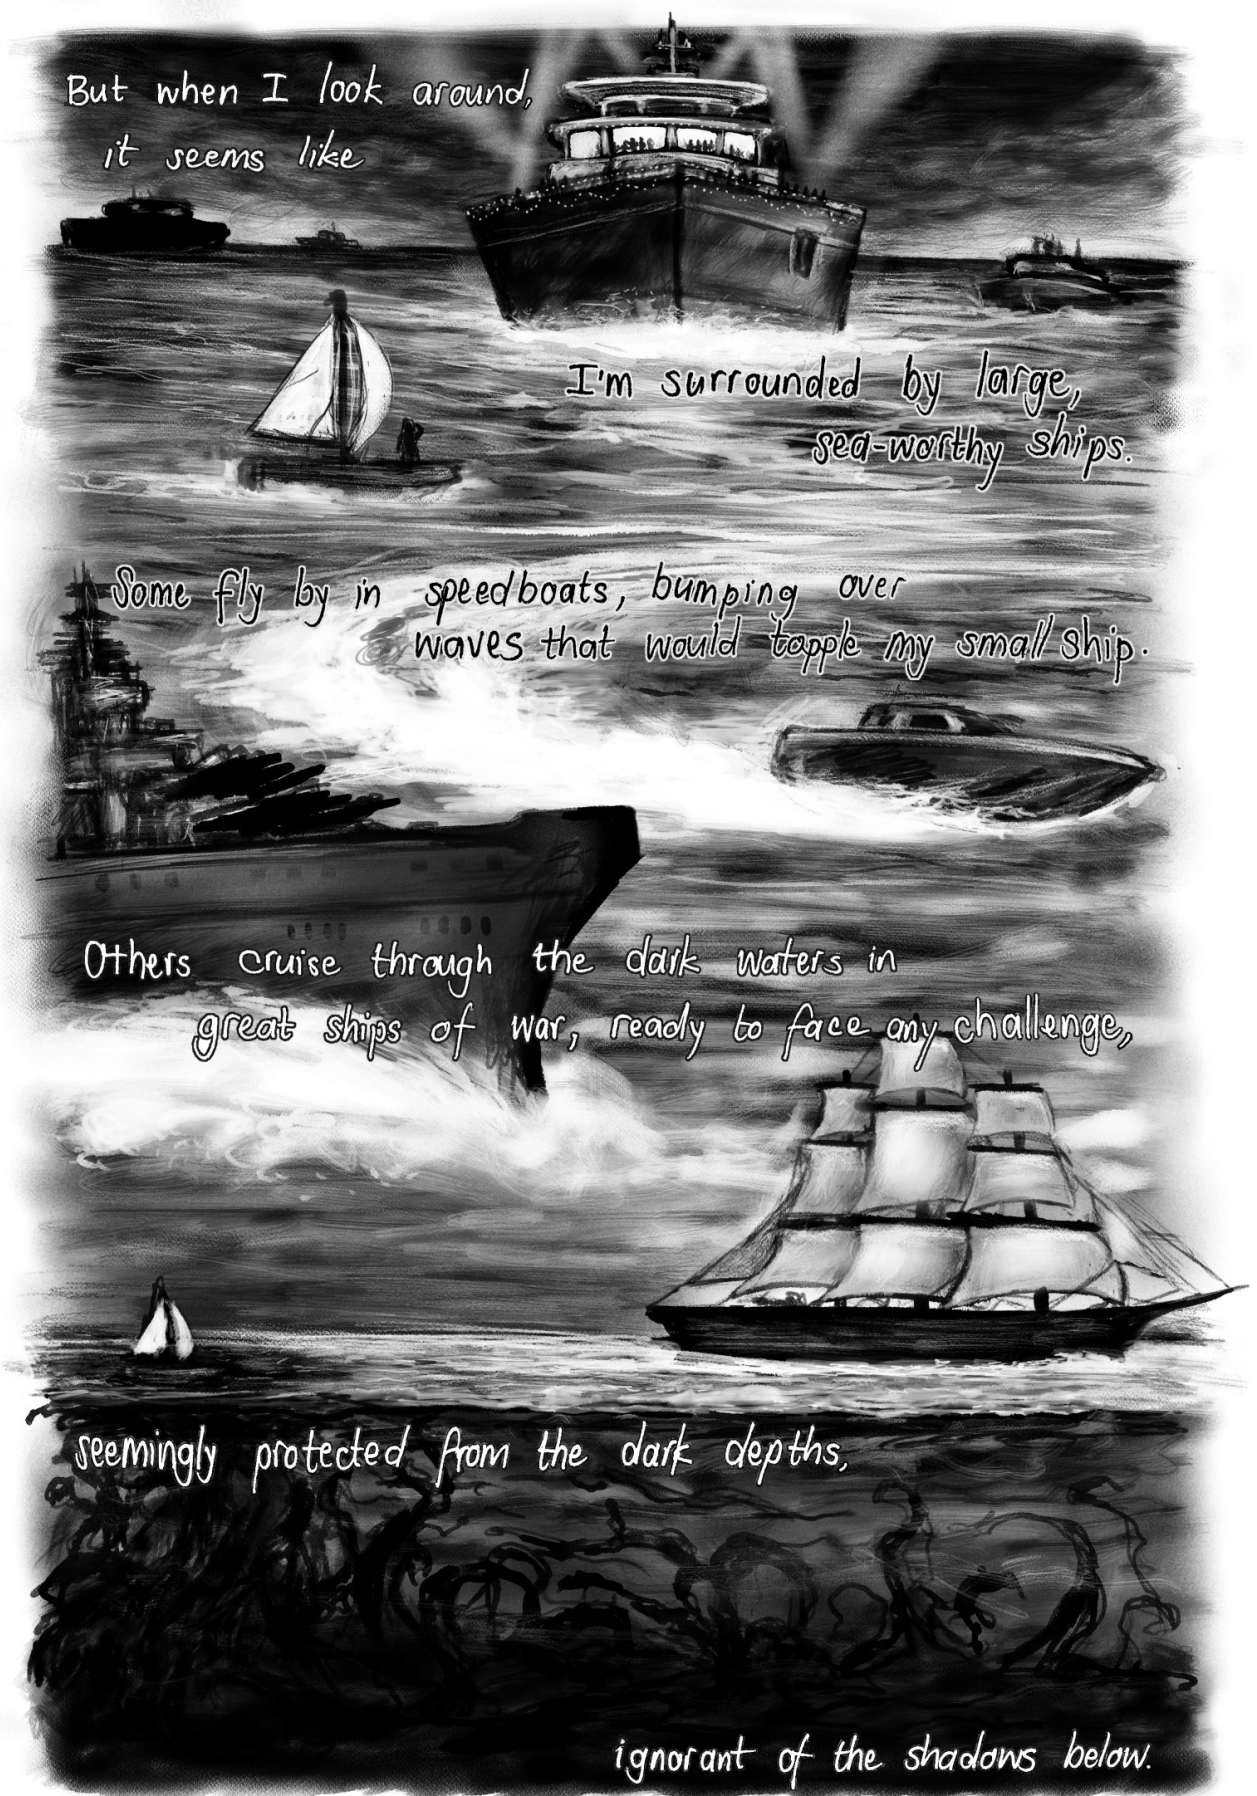 But when I look around,
it seems like
I'm surrounded by large,
sea-worthy ships.
Some fly by in speedboats, bumping over
waves that would topple my small ship.
Others cruise through the dark waters in
great ships of war, ready to face any challenge,
seemingly protected from the dark depths,
ignorant of the shadows below.